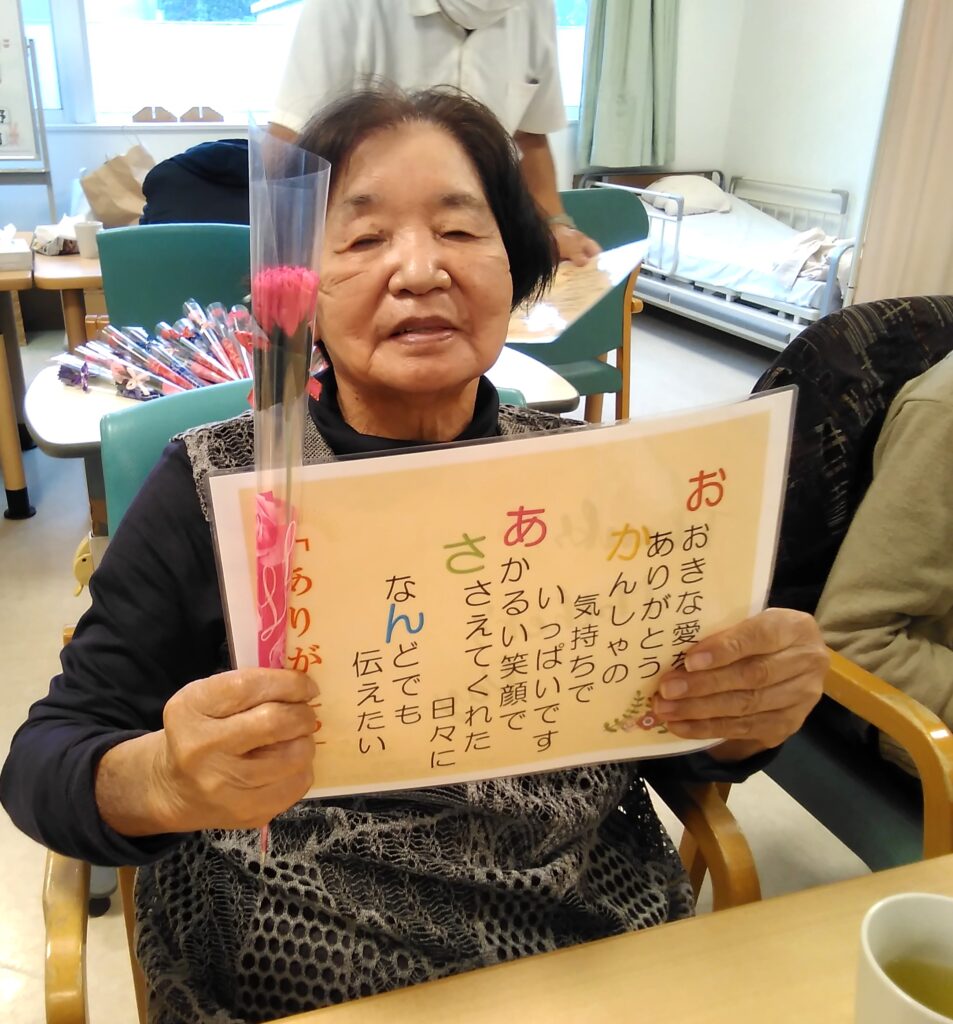 おおきな愛を
ありがとう
かんしゃの
気持ちで
いっぱいです
あかるい笑顔で
ささえてくれた
日々に
なんどでも
伝えたい
「ありが